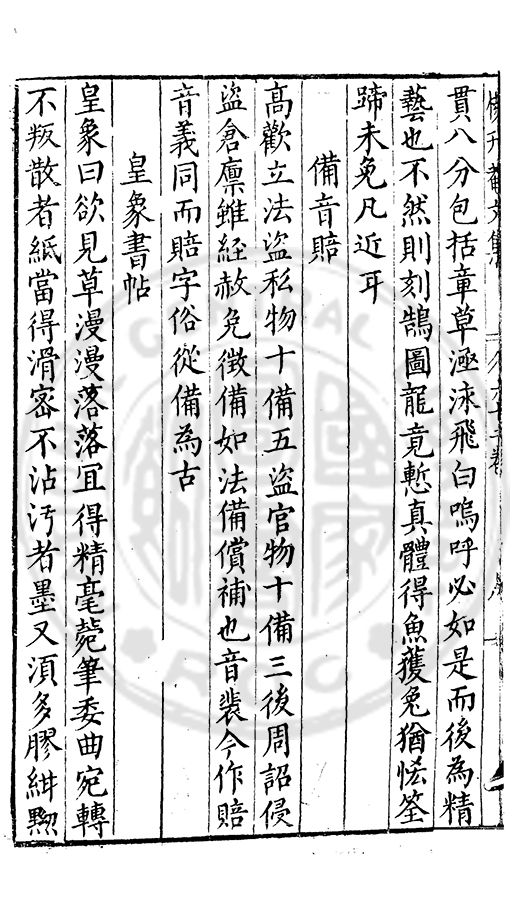 貫八分包括章草涵泳飛白嗚呼必如是而後為精
藝也不然則刻鵠圖龍竟慙真體得魚獲兔猶恡筌
蹄未免凡近耳
備音賠
高歡立法盜私物十備五盜官物十備三後周詔侵
盜倉廩雖経赦免徴備如法備償補也音裴今作賠
音義同而賠字俗從備為古
皇象書帖
皇象曰欲見草漫漫落落冝得精毫𦭼筆委曲宛轉
不叛散者紙當得滑宻不沾汚者墨又湏多膠紺黝